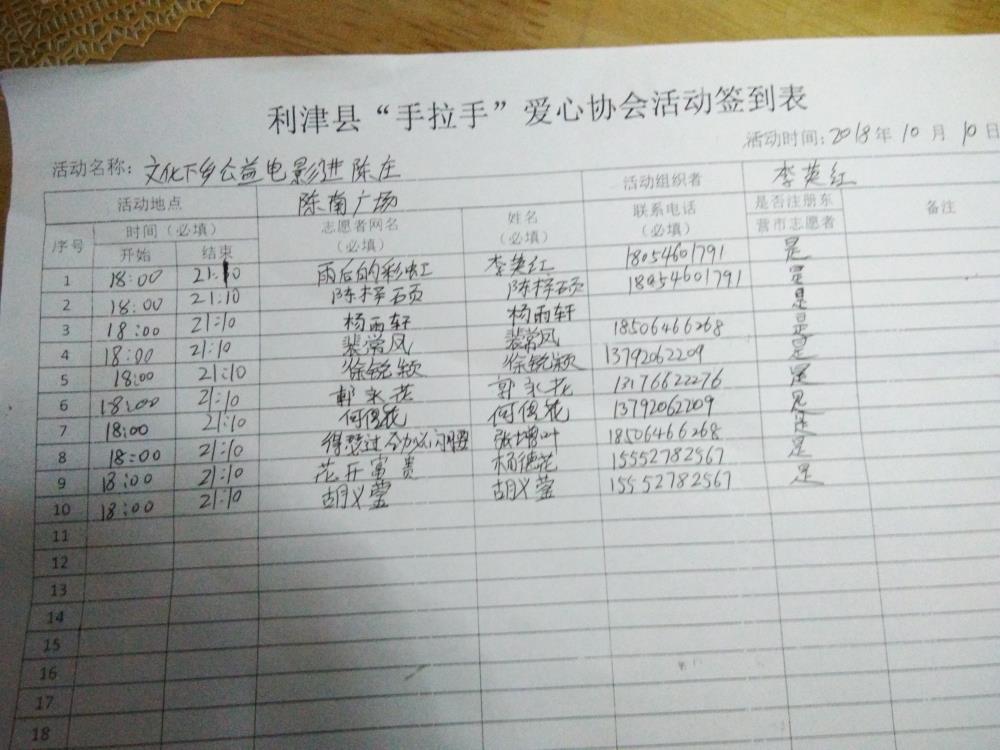 利津县“手拉手”爱心协会活动签到表
活动时间：2018年10月10日
活动名称：文化下乡公益电影进陈庄
活动地点 陈南广场 活动组织者 李英红
序号 时间（必填） 志愿者网名（必填） 姓名（必填） 联系电话（必填） 是否注册东营市志愿者 备注
开始 结束
1 18:00 21:10 雨后的彩虹 李英红 18054601791 是
2 18:00 21:10 陈梓硕 陈梓硕 18054601791 是
3 18:00 21:10 杨雨轩 杨雨轩 是
4 18:00 21:10 裴常风 裴常风 18506466268 是
5 18:00 21:10 徐锐颖 徐锐颖 13792062209 是
6 18:00 21:10 郭永花 郭永花 13176622276 是
7 18:00 21:10 何俊花 何俊花 13792062209 是
8 18:00 21:10 得瑟过 闪腰 张增叶 18506466268 是
9 18:00 21:10 花开富贵 杨德花 15552782567 是
10 18:00 21:10 胡义莹 胡义莹 15552782567 是
11
12
13
14
15
16
17
18